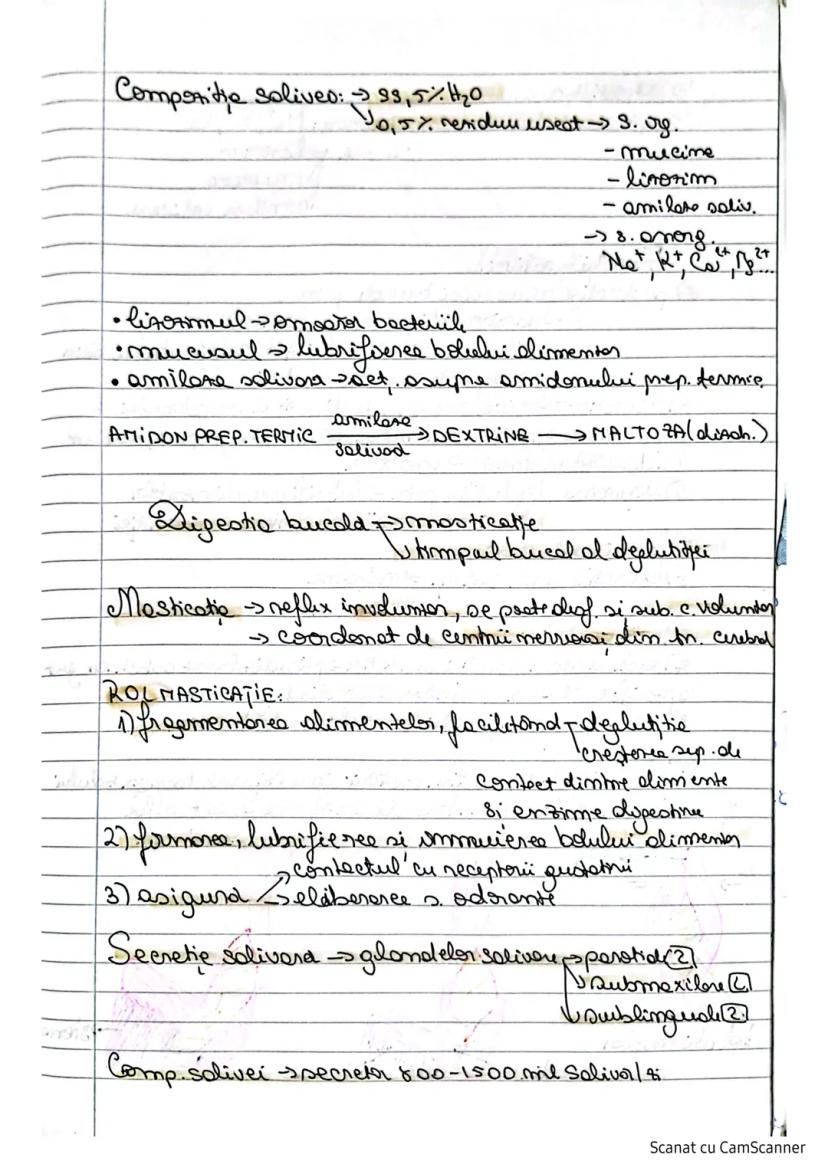 Compoziția salivei: → 99,5% H₂O
↘ 0,5% reziduu uscat → S. org.
- mucine
- lizozim
- amilare saliv.
→ s. anorg.
Na⁺, K⁺, Ca²⁺, Mg²⁺...
• lizozimul → omoară bacteriile
• mucusul → lubrifierea bolului alimentar
• amilaza salivară → acț. asupra amidonului prep. termic
AMIDON PREP. TERMIC amilare salivară → DEXTRINE → MALTOZA (dizah.)
Digestia bucală → masticație
↘ timpul bucal al deglutiției
Masticația → reflex involuntar, se poate desf. și sub c. voluntar
→ coordonat de centrii nervoși din tr. cerebral
ROL MASTICAȚIE:
1) fragmentarea alimentelor, facilitând deglutiția
creșterea sup. de
contact dintre alimente
și enzime digestive
2) formarea, lubrifierea și înmuierea bolului alimentar
→ contactul cu receptorii gustativi
3) asigură → eliberarea s. odorante
Secreție salivară → glandelor salivare → parotide 2
↘ submaxilare 2
↘ sublinguale 2
Comp. salivei → secretă 800-1500 ml salivă/zi
Scanat cu CamScanner